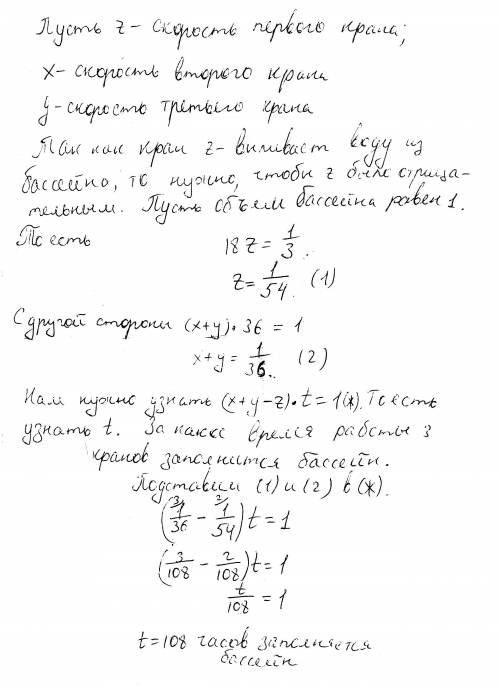 Пусть z - скорость первого крана;
x - скорость второго крана
y - скорость третьего крана
Так как кран z - выливает воду из
бассейна, то нужно, чтобы z было отрица-
тельным. Пусть объем бассейна равен 1.
То есть 18z = 1/3
z = 1/54. (1)
С другой стороны (x+y)·36 = 1
x+y = 1/36. (2)
Нам нужно узнать (x+y-z)·t = 1(*). То есть
узнать t. За какое время работы 3
кранов заполнится бассейн.
Подставим (1) и (2) в (*).
(3/ 1/36 - 2/ 1/54) t = 1
(3/108 - 2/108) t = 1
t/108 = 1
t = 108 часов заполняется
бассейн